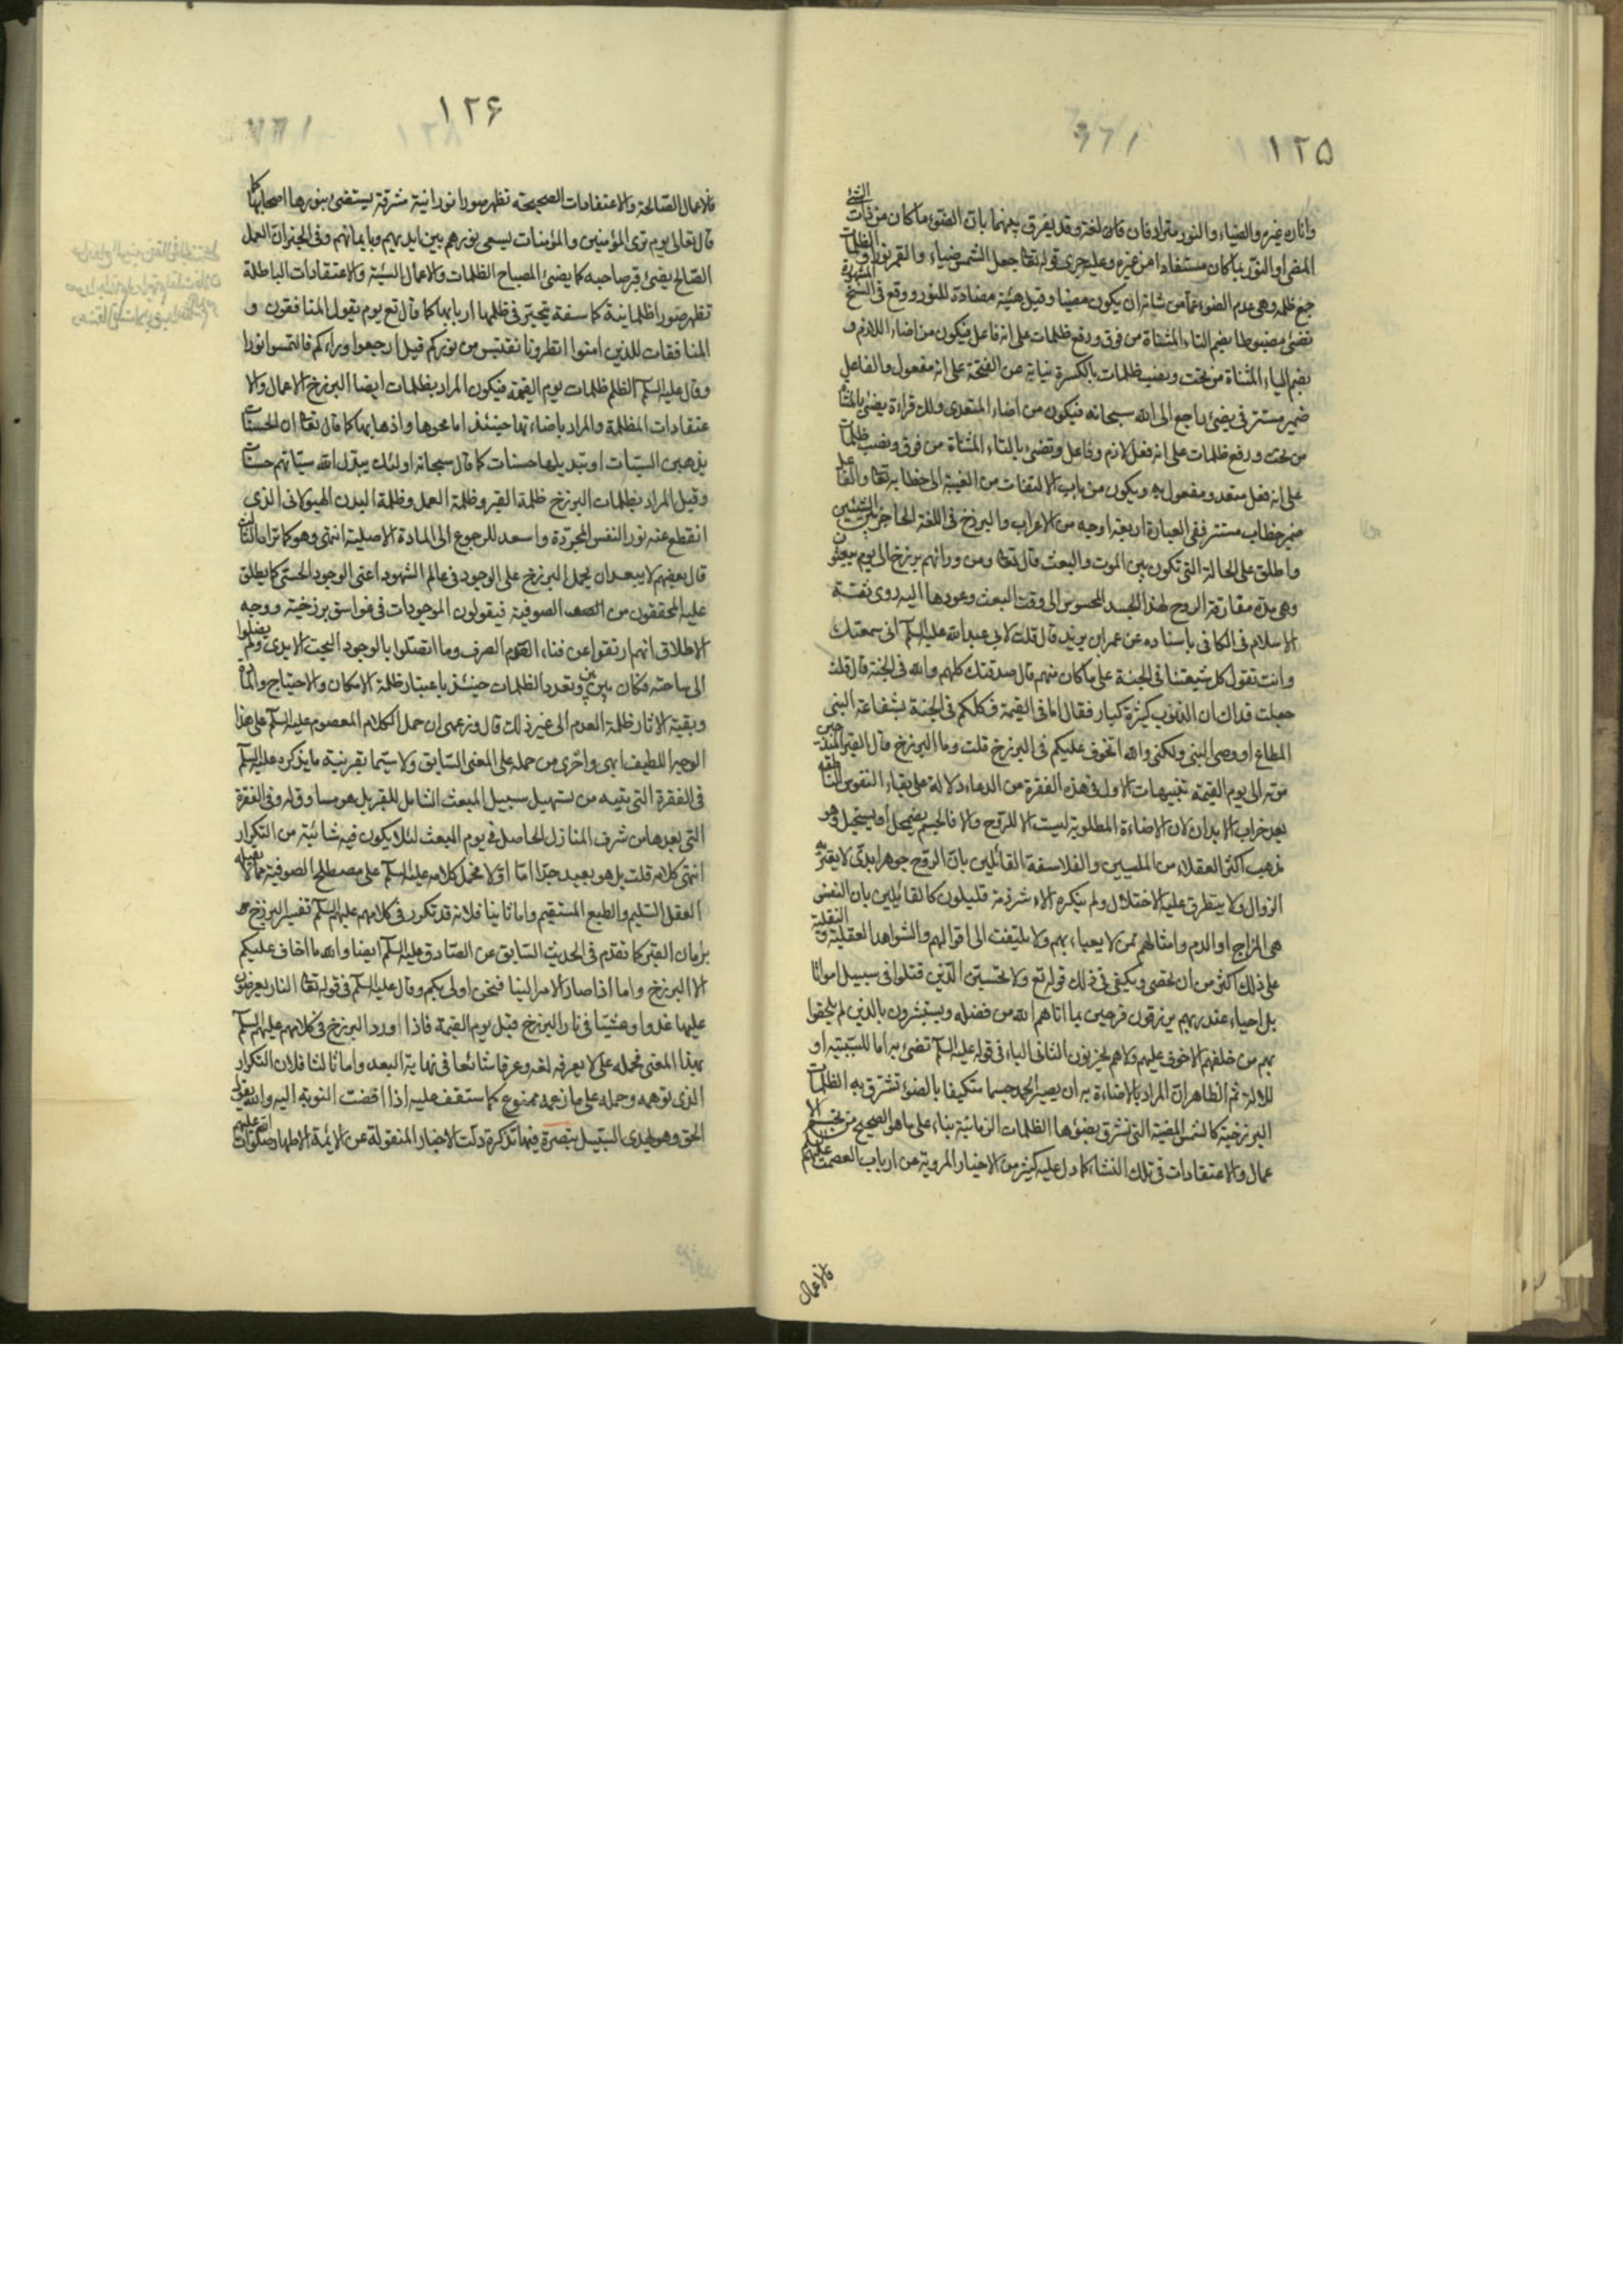 ١٢٥
وانارة غيره والضياء والنور مترادفان لغة وقد يفرق بينهما بان الضوء ما كان من ذات الشئ
المضئ والنور بما كان مستفادا من غيره وعليه جرى قوله تعا جعل الشمس ضياء والقمر نورا والظلمات
جمع ظلمه وهى عدم الضوء عما من شانه ان يكون مضيئا وقيل هيئة مضادة للنور ووقع فى النسخ المشهورة
تضئ مضبوطا بضم التاء المثناة من فوق ورفع ظلمات على انه فاعل فيكون من اضاء اللازم و
بضم الياء المثناة من تحت ونصب ظلمات بالكسرة نيابة عن الفتحة على انه مفعول والفاعل
ضمير مستتر فى يضئ راجع الى الله سبحانه فيكون من اضاء المتعدى ولك قراءة يضئ بالمثناة
من تحت ورفع ظلمات على انه فعل لازم وفاعل وتضئ بالتاء المثناة من فوق ونصب ظلمات
على انه فعل متعد ومفعول به ويكون من باب الالتفات من الغيبة الى خطابه تعا والفاعل
ضمير خطاب مستتر ففى العبارة اربعة اوجه من الاعراب والبرزخ فى اللغة الحاجز بين الشيئين
واطلق على الحالة التى تكون بين الموت والبعث قال تعا ومن ورائهم برزخ الى يوم يبعثون
وهى مدة مفارقة الروح لهذا الجسد المحسوس الى وقت البعث وعودها اليه روى ثقة
الاسلام فى الكافى باسناده عن عمر بن يزيد قال قلت لابى عبد الله عليه السلم انى سمعتك
وانت تقول كل شيعتنا فى الجنة على ما كان منهم قال صدقتك كلهم والله فى الجنة قال قلت
جعلت فداك ان الذنوب كثيرة كبار فقال اما فى القيمة فكلكم فى الجنة بشفاعة النبى
المطاع او وصى النبى ولكنى والله اتخوف عليكم فى البرزخ قلت وما البرزخ قال القبر منذ حين
موته الى يوم القيمة تنبيهات الاول فى هذه الفقرة من الدعاء دلالة على بقاء النفوس الناطقه
بعد خراب الابدان لان الاضاءة المطلوبة ليست الا للروح والا فالجسم يضمحل او يستحيل وهو
مذهب اكثر العقلاء من المليين والفلاسفة القائلين بان الروح جوهر ابدى لا يعتريه
الزوال ولا يتطرق عليه الاختلال ولم ينكره الا شرذمة قليلون كالقائلين بان النفس
هى المزاج او الدم وامثالهم ممن لا يعباء بهم ولا يلتفت الى اقوالهم والشواهد العقلية والنقلية
على ذلك اكثر من ان تحصى ويكفى فى ذلك قوله تع ولا تحسبن الذين قتلوا فى سبيل الله امواتا
بل احياء عند ربهم يرزقون فرحين بما اتاهم الله من فضله ويستبشرون بالذين لم يلحقوا
بهم من خلفهم الا خوف عليهم ولا هم يحزنون الثانى الباء فى قوله عليه السلم تضئ به اما للسببية او
للالة ثم الظاهر ان المراد بالاضاءة به ان يصير الحمد جسما متكيفا بالضوء تشرق به الظلمات
البرزخية كالشمس المضيئة التى تشرق بضوئها الظلمات الزمانية بناء على ما هو الصحيح من تجسم الا
عمال والاعتقادات فى تلك النشاة كما دل عليه كثير من الاخبار المروية عن ارباب العصمة عليهم السلم
فالاعمال
١٢۶
فالاعمال الصالحة والاعتقادات الصحيحة تظهر صورا نورانية مشرقة يستضئ بنورها اصحابها كما
قال تعالى يوم ترى المؤمنين والمؤمنات يسعى نورهم بين ايديهم وبايمانهم وفى الخبر ان العمل
الصالح يضئ قبر صاحبه كما يضئ المصباح الظلمات والاعمال السيئة والاعتقادات الباطلة
تظهر صورا ظلمانية كاسفة يتحير فى ظلمها اربابها كما قال تع يوم يقول المنافقون و
المنافقات للذين امنوا انظرونا نقتبس من نوركم قيل ارجعوا وراءكم فالتمسوا نورا
وقال عليه السلم الظلم ظلمات يوم القيمة فيكون المراد بظلمات ايضا البرزخ الاعمال والا
عتقادات المظلمة والمراد باضاءتها حينئذ اما محوها واذهابها كما قال تعا ان الحسنات
يذهبن السيئات او تبديلها حسنات كما قال سبحانه اولئك يبدل الله سيئاتهم حسنات
وقيل المراد بظلمات البرزخ ظلمة القبر وظلمة العمل وظلمة البدن الهيولانى الذى
انقطع عنه نور النفس المجردة واسعد للرجوع الى المادة الاصلية انتهى وهو كما تراه الثالث
قال بعضهم لا يبعد ان يحمل البرزخ على الوجود فى عالم الشهود اعنى الوجود الحسى كما يطلق
عليه المحققون من الصوفية فيقولون الموجودات فى فواسق برزخية ووجه
الاطلاق انهم ارتقوا عن فناء العدم الصرف وما اتصلوا بالوجود البحت الابدى ولم يصلوا
الى ساحته فكان بين بين وتعدد الظلمات حينئذ باعتبار ظلمة الامكان والاحتياج والمادة
وبقية الاثار ظلمة العدم الى غير ذلك قال وزعمى ان حمل الكلام المعصوم عليه السلم على هذا
الوجه اللطيف ابهى واحرى من حمله على المعنى السابق ولا سيما بقرينة ما يذكره عليه السلم
فى الفقرة التى بعده من تسهيل سبيل المبعث الشامل للقبر بل هو مساوق له وفى الفقرة
التى بعدها من شرف المنازل الحاصل فى يوم المبعث لئلا يكون فيه شائبة من التكرار
انتهى كلامه قلت بل هو بعيد جدا اما اولا فحمل كلامه عليه السلم على مصطلح الصوفية مما لا يقبله
العقل السليم والطبع المستقيم واما ثانيا فلانه قد تكرر فى كلامهم عليهم السلم تفسير البرزخ
بزمان القبر كما تقدم فى الحديث السابق عن الصادق عليه السلم ايضا والله ما اخاف عليكم
الا البرزخ واما اذا صار الامر الينا فنحن اولى بكم وقال عليه السلم فى قوله تعا النار يعرضون
عليها غدوا وعشيا فى نار البرزخ قبل يوم القيمة فاذا اورد البرزخ فى كلامهم عليهم السلم
بهذا المعنى فحمله على لا يعرفه لغه وعرفا شائعا فى نهاية البعد واما ثالثا فلان التكرار
الذى توهمه وحمله على ما زعمه ممنوع كما ستقف عليه اذا افضت النوبة اليه والله يقول
الحق وهو يهدى السبيل تبصرة فيها تذكرة دلت الاخبار المنقولة عن الائمة الاطهار صلوات الله عليهم